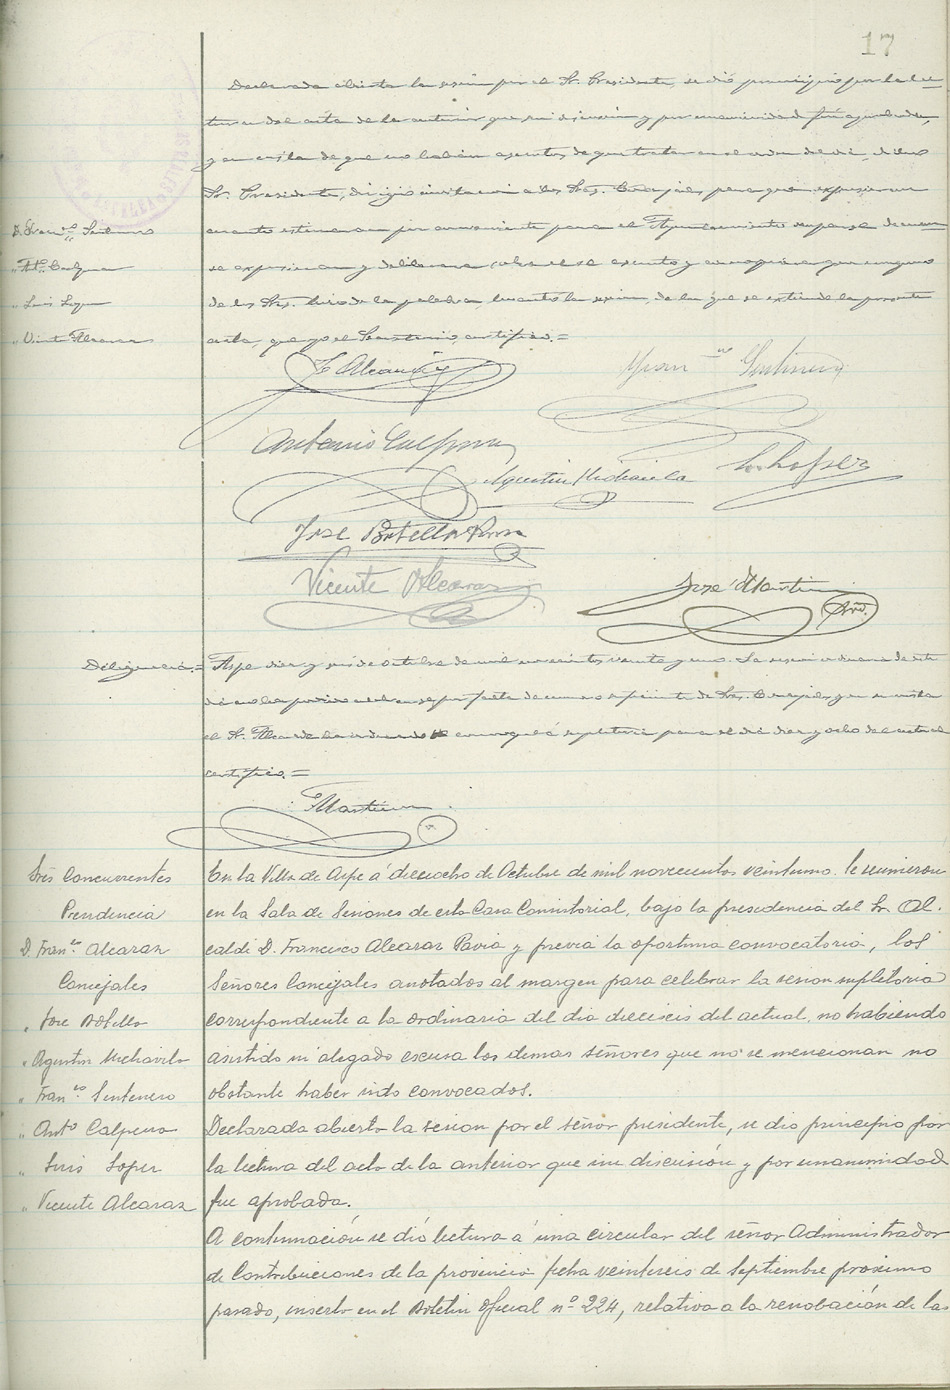 17
Declarada abierta la sesión por el Sr. Presidente, se dió principio por la lec
tura del acta de la anterior que sin discusión y por unanimidad fué aprobada,
y en vista de que no habían asuntos de que tratar en el orden del día, dicho
Sr. Presidente, dirigió invitación a los Sres. Concejales para que expusieran
cuanto estimaran por conveniente para el Ayuntamiento
se expusieran y deliberara sobre el asunto y
de los Sres. hizo de la palabra, levantó la sesión, de la que se extiende la presente
acta, que yo el Secretario, certifico.=
D. Franco Senbrero
" Anto. Calpena
" Luis Lopez
" Vicente Alcaraz
F. Alcaraz
Franco
Antonio Calpena
Agustin Michavila
L. Lopez
Jose Botella
Vicente Alcaraz
José Martin
Srio.
Diligencia.= Aspe diez y seis de octubre de mil novecientos veinte y uno. La sesión ordinaria de este
día no ha podido celebrarse por falta de numero suficiente de Sres. Concejales, y en su vista
el Sr. Alcalde ha ordenado se convoque á supletoria para el día diez y ocho del actual
certifico.=
Martin
Sres Concurrentes
Presidencia
D. Franco Alcaraz
Concejales
" Jose Botella
" Agustin Michavila
" Franco Sentenero
" Anto Calpena
" Luis Lopez
" Vicente Alcaraz
En la Villa de Aspe á dieciocho de Octubre de mil novecientos veintiuno. Se reunieron
en la Sala de Sesiones de esta Casa Consistorial, bajo la presidencia del Sr. Al-
calde D. Francisco Alcaraz Pavia y previa la oportuna convocatoria, los
Señores Concejales anotados al margen para celebrar la sesion supletoria
correspondiente a la ordinaria del dia dieciseis del actual, no habiendo
asistido ni alegado escusa los demas señores que no se mencionan no
obstante haber sido convocados.
Declarada abierta la sesion por el señor presidente, se dio principio por
la lectura del acta de la anterior que sin discusión y por unanimidad
fue aprobada.
A continuación se dió lectura á una circular del señor Administrador
de Contribuciones de la provincia fecha veintiseis de Septiembre proximo
pasado, inserta en el Boletin Oficial nº 224, relativa a la renobación de las